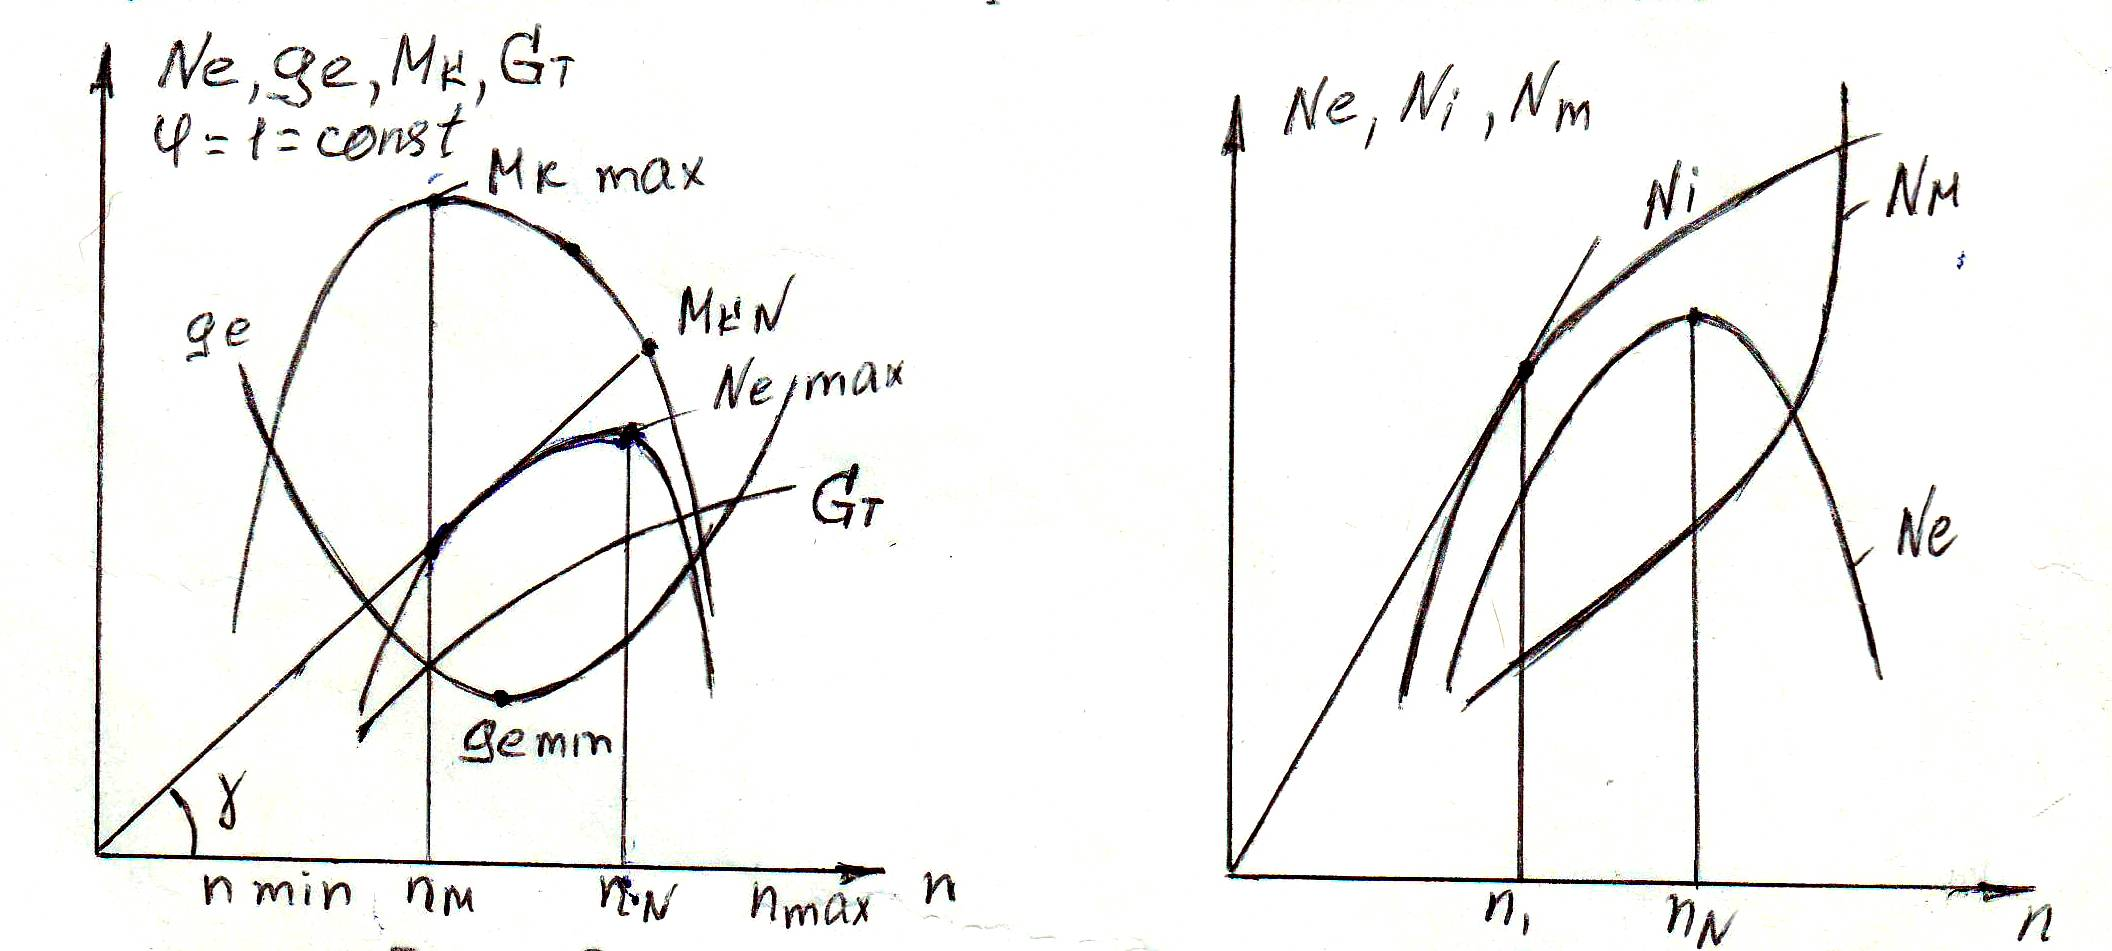 Ne, ge, Mк, Gт
φ = 1 = const
Mк max
ge
MкN
Ne max
Gт
ge min
γ
n min nм nN nmax n
Ne, Ni, Nm
Ni
Nм
Ne
n1 nN n